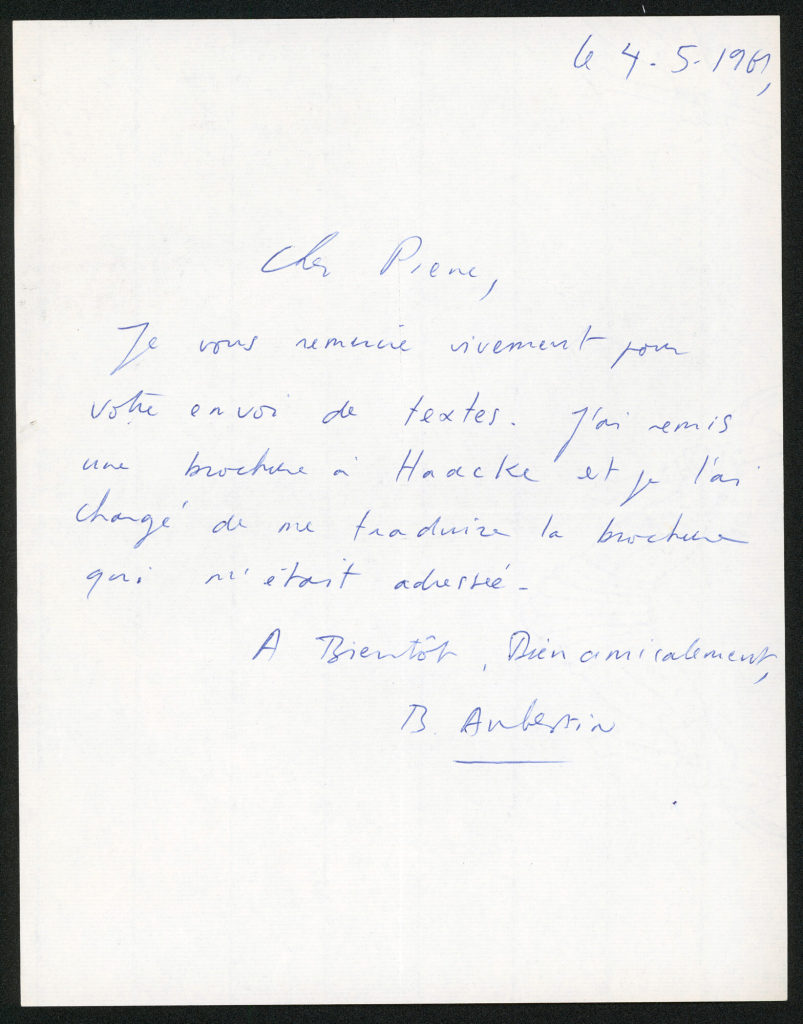 le 4.5.1961,
Cher Piene,
Je vous remercie vivement pour
votre envoi de textes. J'ai remis
une brochure à Haacke et je l'ai
chargé de me traduire la brochure
qui m'était adressée.
A Bientôt, Bien amicalement,
B. Aubertin